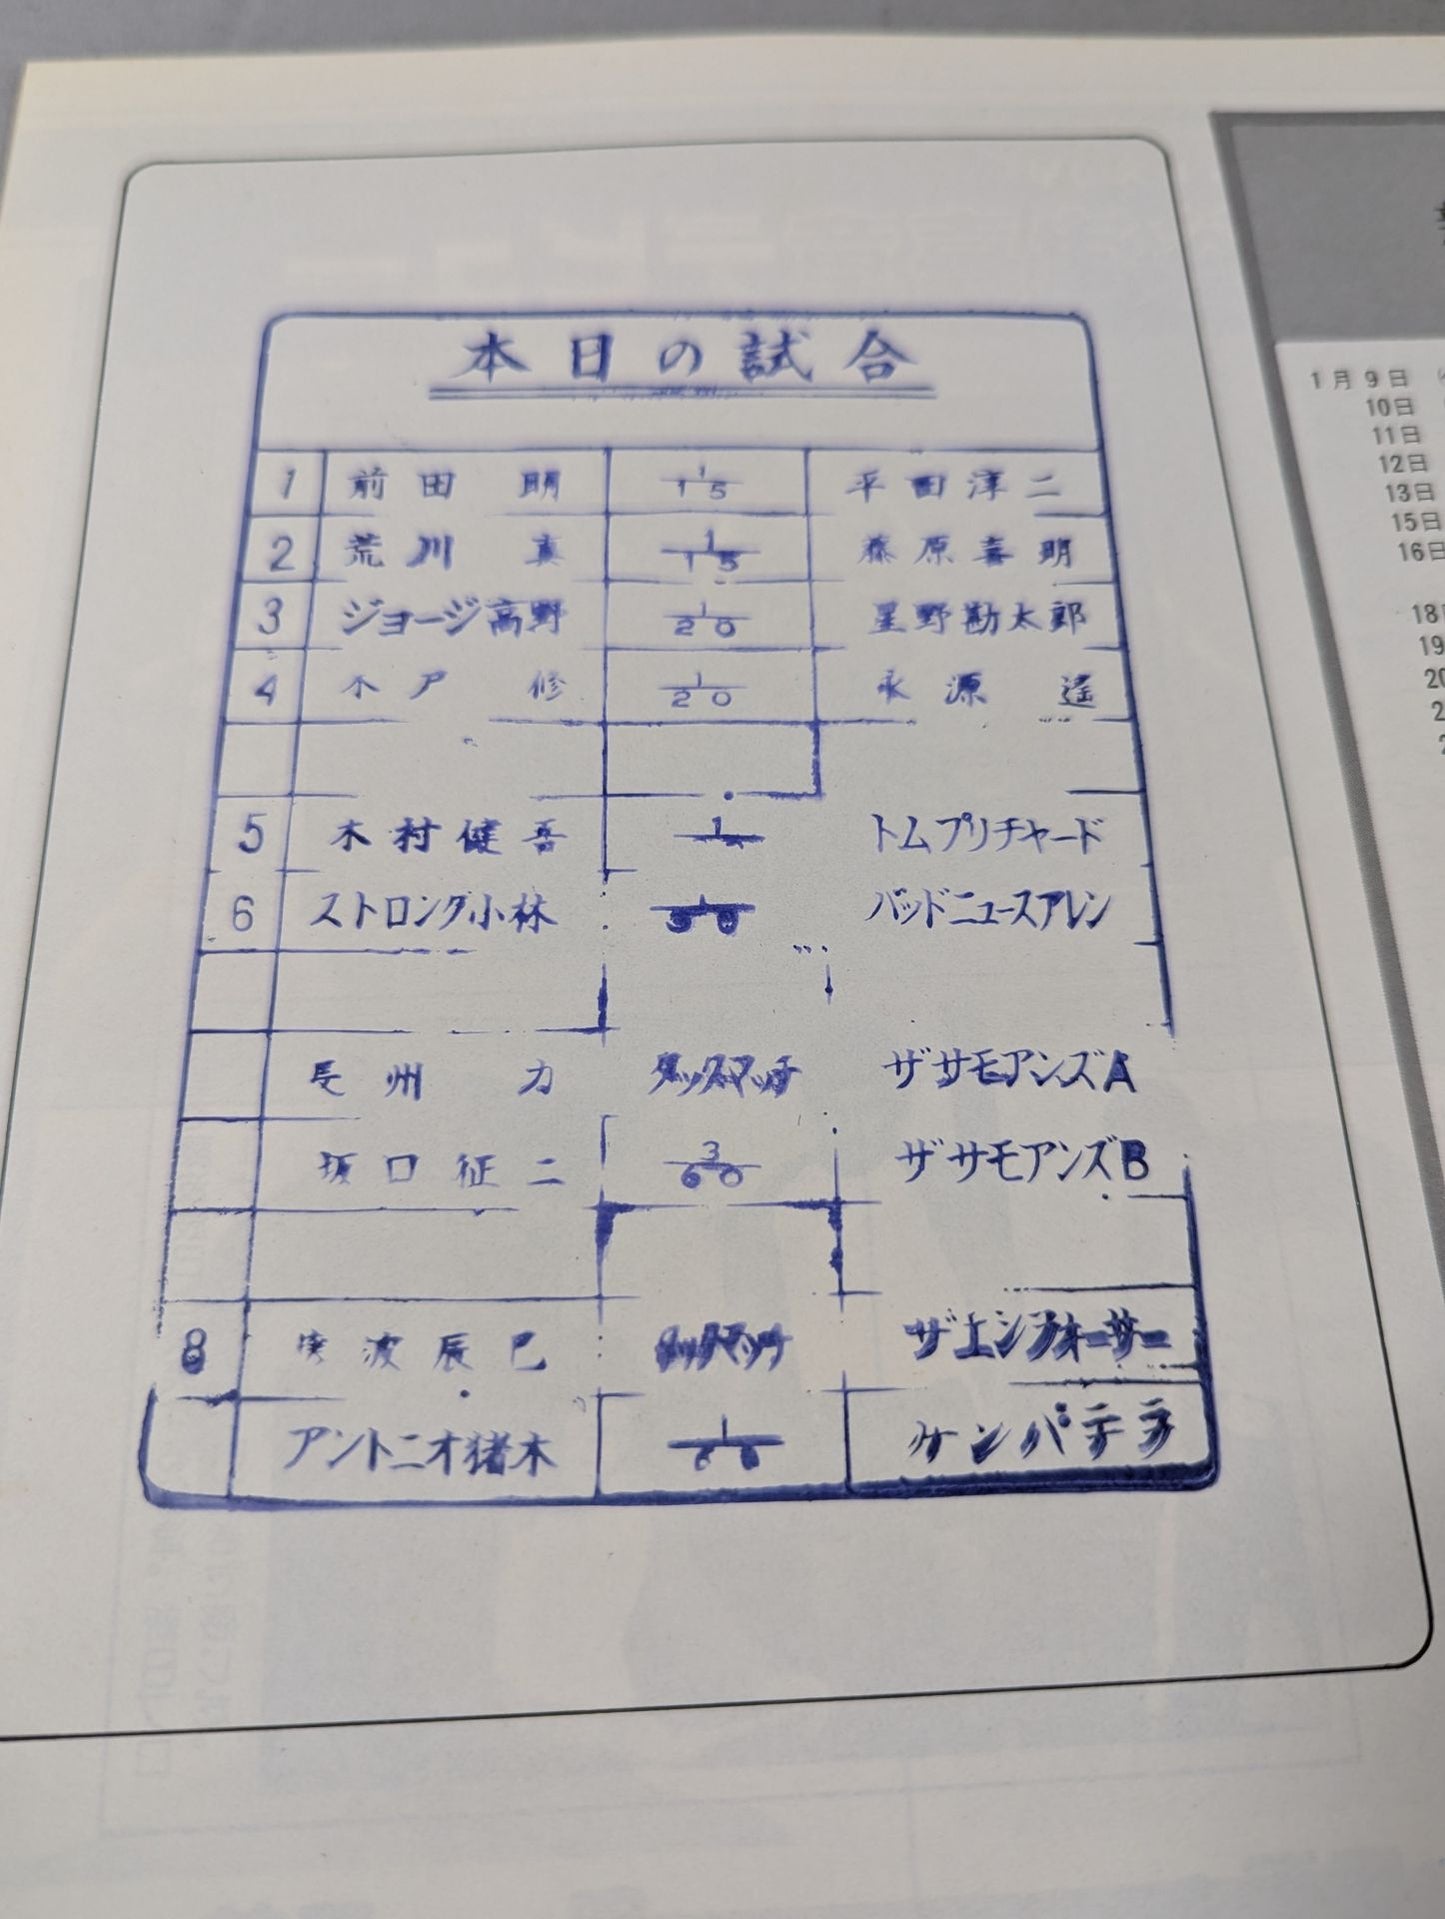 本日の試合
1 前田 明 1/15 平田淳二
2 荒川 真 1/15 藤原喜明
3 ジョージ高野 1/20 星野勘太郎
4 木戸 修 1/20 永源 遥
5 木村健吾 1 トムプリチャード
6 ストロング小林 1/30 バッドニュースアレン
長州 力 タッグマッチ ザサモアンズA
坂口征二 3/60 ザサモアンズB
8 波辰巳 タッグマッチ ザエンフォーサー
アントニオ猪木 1/60 ケンパテラ
1月9日
10日
11日
12日
13日
15日
16日
18
19
20